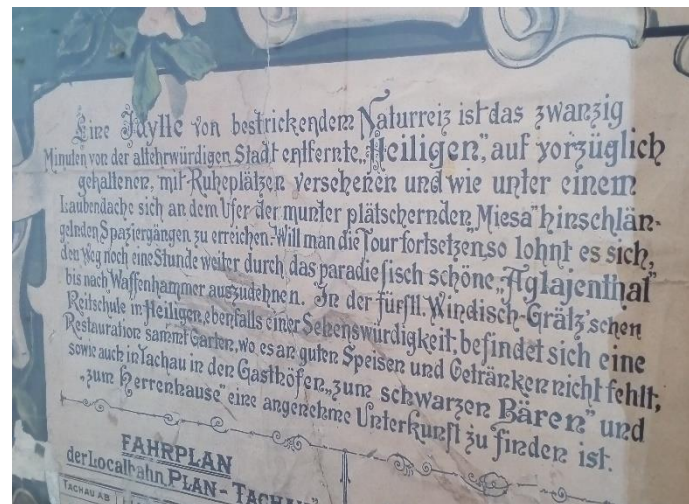 Eine Idylle von bestrickendem Naturreiz ist das zwanzig
Minuten von der altehrwürdigen Stadt entfernte „Heiligen”, auf vorzüglich
gehaltenen, mit Ruheplätzen versehenen und wie unter einem
Laubendache sich an dem Ufer der munter plätschernden „Miesa” hinschlän-
gelnden Spaziergängen zu erreichen. Will man die Tour fortsetzen, so lohnt es sich,
den Weg noch eine Stunde weiter durch das paradiesisch schöne „Aglajenthal”
bis nach Waffenhammer auszudehnen. In der fürstl. Windisch-Grätz'schen
Reitschule in Heiligen, ebenfalls einer Sehenswürdigkeit, befindet sich eine
Restauration sammt Garten, wo es an guten Speisen und Getränken nicht fehlt,
sowie auch in Tachau in den Gasthöfen „zum schwarzen Bären” und
„zum Herrenhause” eine angenehme Unterkunft zu finden ist.
FAHRPLAN
der Localbahn „PLAN - TACHAU”
TACHAU AB